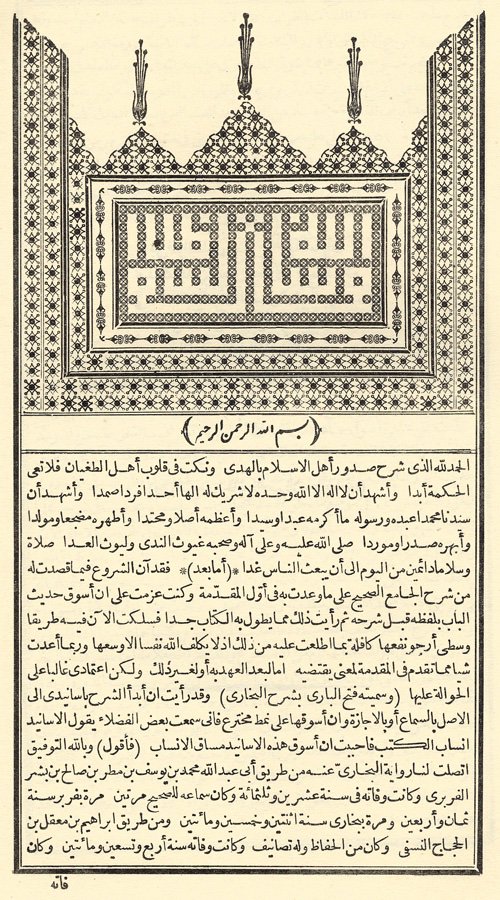 ﴿ بسم الله الرحمن الرحيم ﴾
الحمد لله الذى شرح صدور أهل الاسلام بالهدى ونكت فى قلوب أهل الطغيان فلا تعى
الحكمة أبدا وأشهد أن لا اله الا الله وحده لا شريك له الها أحدا فردا صمدا وأشهد أن
سيدنا محمدا عبده ورسوله ما أكرمه عبدا وسيدا وأعظمه أصلا ومحتدا وأطهره مضجعا ومولدا
وأبهره صدرا وموردا صلى الله عليه وعلى آله وصحبه غيوث الندى وليوث العدا صلاة
وسلاما دائمين من اليوم الى أن يبعث الناس غدا *(أما بعد)* فقد آن الشروع فيما قصدت له
من شرح الجامع الصحيح على ما وعدت به فى أول المقدمة وكنت عزمت على ان أسوق حديث
الباب بلفظه قبل شرحه ثم رأيت ذلك مما يطول به الكتاب جدا فسلكت الآن فيه طريقا
وسطى أرجو نفعها كافلة بما اطلعت عليه من ذلك اذ لا يكلف الله نفسا الا وسعها وربما أعدت
شيأ مما تقدم فى المقدمة لمعنى يقتضيه اما لبعد العهد به أو لغير ذلك ولكن اعتمادى غالبا على
الحوالة عليها (وسميته فتح البارى بشرح البخارى) وقد رأيت ان أبدأ الشرح بأسانيدى الى
الاصل بالسماع أو بالاجازة وان أسوقها على نمط مخترع فانى سمعت بعض الفضلاء يقول الاسانيد
انساب الكتب فاحببت ان أسوق هذه الاسانيد مساق الانساب (فأقول) وبالله التوفيق
اتصلت لنا رواية البخارى عنه من طريق أبى عبد الله محمد بن يوسف بن مطر بن صالح بن بشر
الفربرى وكانت وفاته فى سنة عشرين وثلثمائة وكان سماعه للصحيح مرتين مرة بفربر سنة
ثمان وأربعين ومرة ببخارى سنة اثنتين وخمسين ومائتين ومن طريق ابراهيم بن معقل بن
الحجاج النسفى وكان من الحفاظ وله تصانيف وكانت وفاته سنة أربع وتسعين ومائتين وكان
فاته